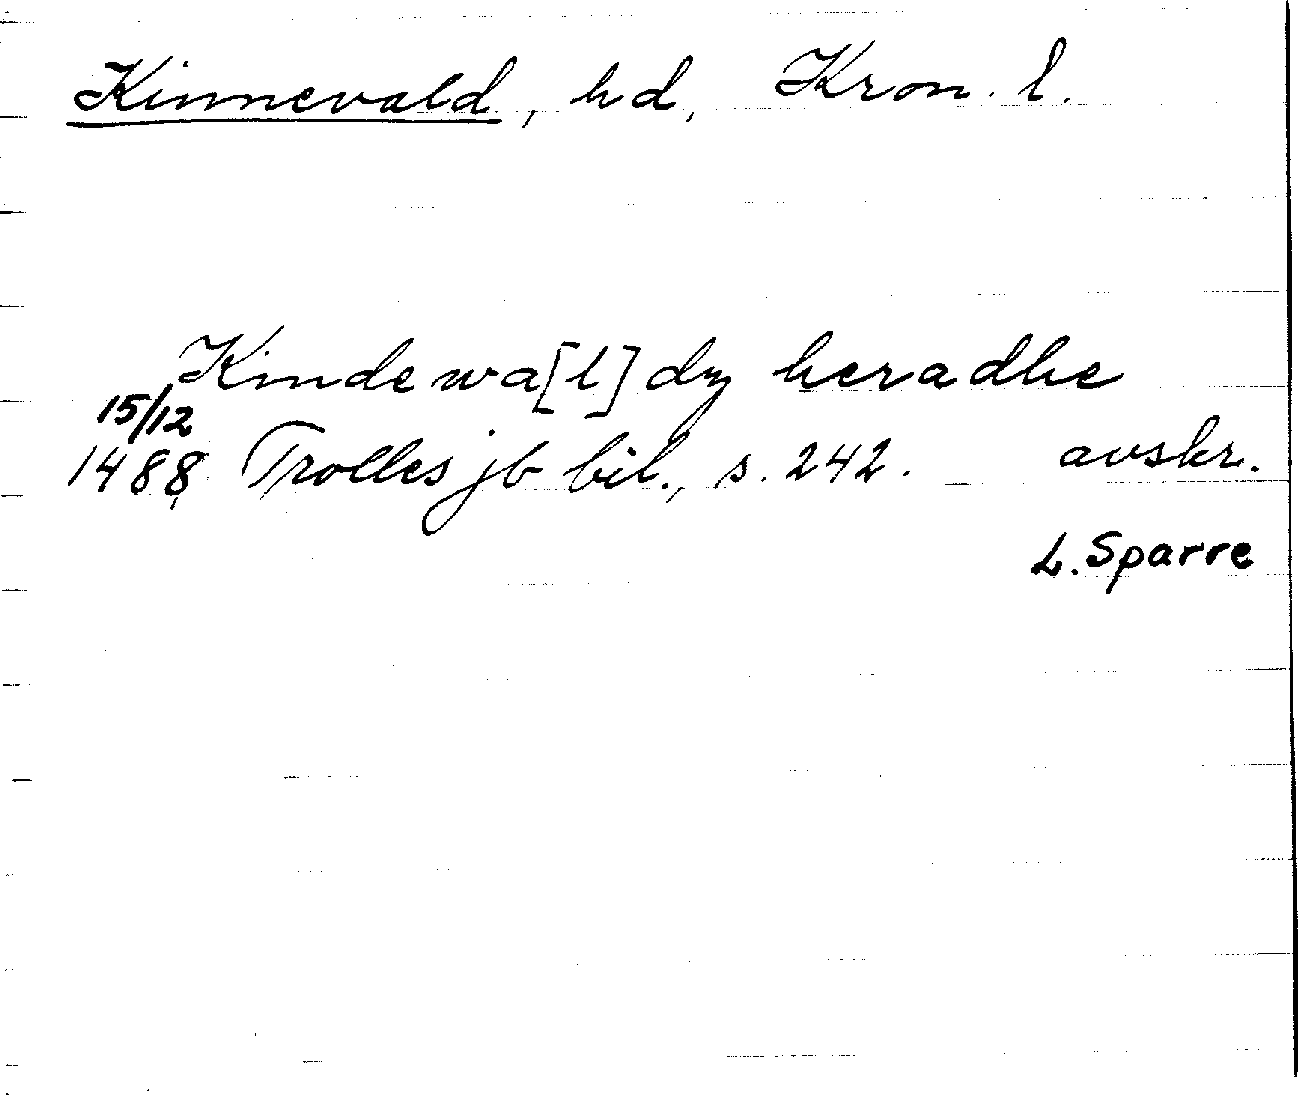 Kinnevald, hd, Kron. l.
Kindewa[l]dz heradhe
15/12
1488 Trolles jb bil., s. 242. avskr.
L. Sparre